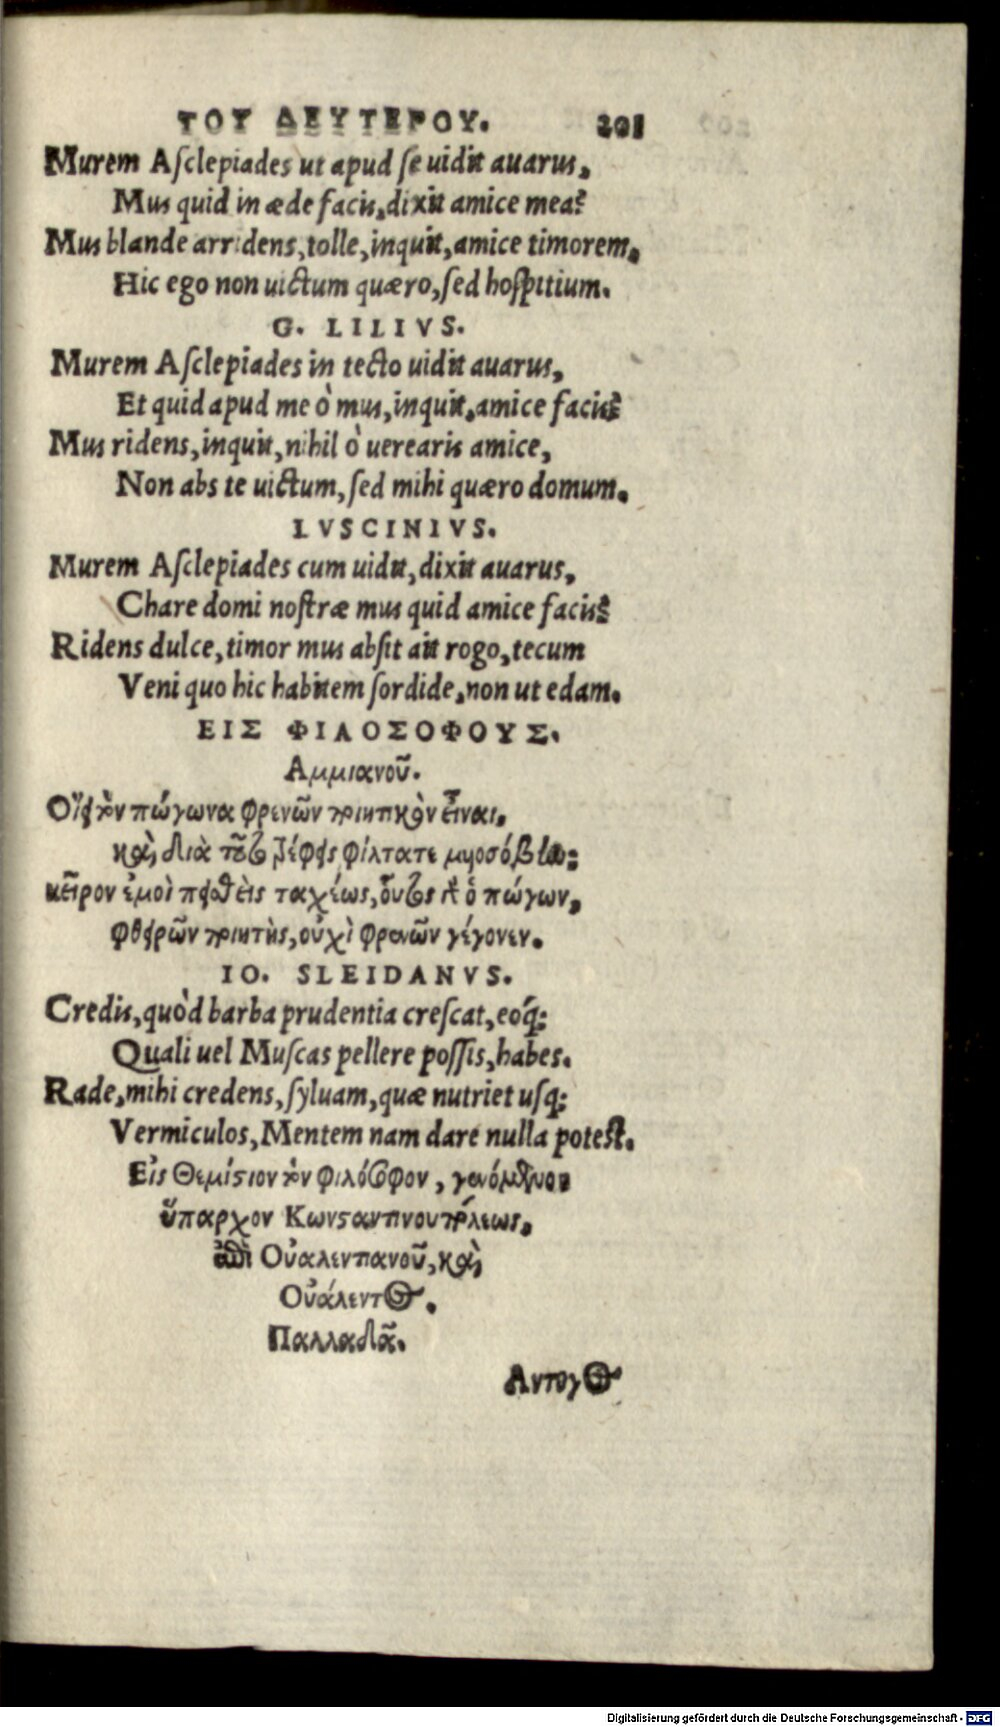 ΤΟΥ ΔΕΥΤΕΡΟΥ. 201
Murem Aſclepiades ut apud ſe uidit auarus,
Mus quid in æde facis, dixit amice mea?
Mus blande arridens, tolle, inquit, amice timorem,
Hic ego non uictum quæro, ſed hoſpitium.
G. LILIVS.
Murem Aſclepiades in tecto uidit auarus,
Et quid apud me ò mus, inquit, amice facis?
Mus ridens, inquit, nihil ò uerearis amice,
Non abs te uictum, ſed mihi quæro domum.
LVSCINIVS.
Murem Aſclepiades cum uidit, dixit auarus,
Chare domi noſtræ mus quid amice facis?
Ridens dulce, timor mus abſit ait rogo, tecum
Veni quo hic habitem ſordide, non ut edam.
ΕΙΣ ΦΙΛΟΣΟΦΟΥΣ.
Αμμιανοῦ.
Οἴει τὸν πώγωνα φρενῶν ποιητικὸν εἶναι,
καὶ διὰ τοῦτο τρέφεις φίλτατε μυοσόβην;
κεῖρον ἐμοὶ πειθεὶς ταχέως, οὗτος γὰρ ὁ πώγων,
φθειρῶν ποιητὴς, οὐχὶ φρενῶν γέγονεν.
IO. SLEIDANVS.
Credis, quòd barba prudentia creſcat, eóq́;
Quali uel Muſcas pellere poſſis, habes.
Rade, mihi credens, ſyluam, quæ nutriet uſq;
Vermiculos, Mentem nam dare nulla poteſt.
Εἰς Θεμίστιον τὸν φιλόσοφον, γενόμενον
ὕπαρχον Κωνσταντινουπόλεως,
ἐπὶ Οὐαλεντιανοῦ, καὶ
Οὐάλεντος.
Παλλαδᾶ.
Αντυγος